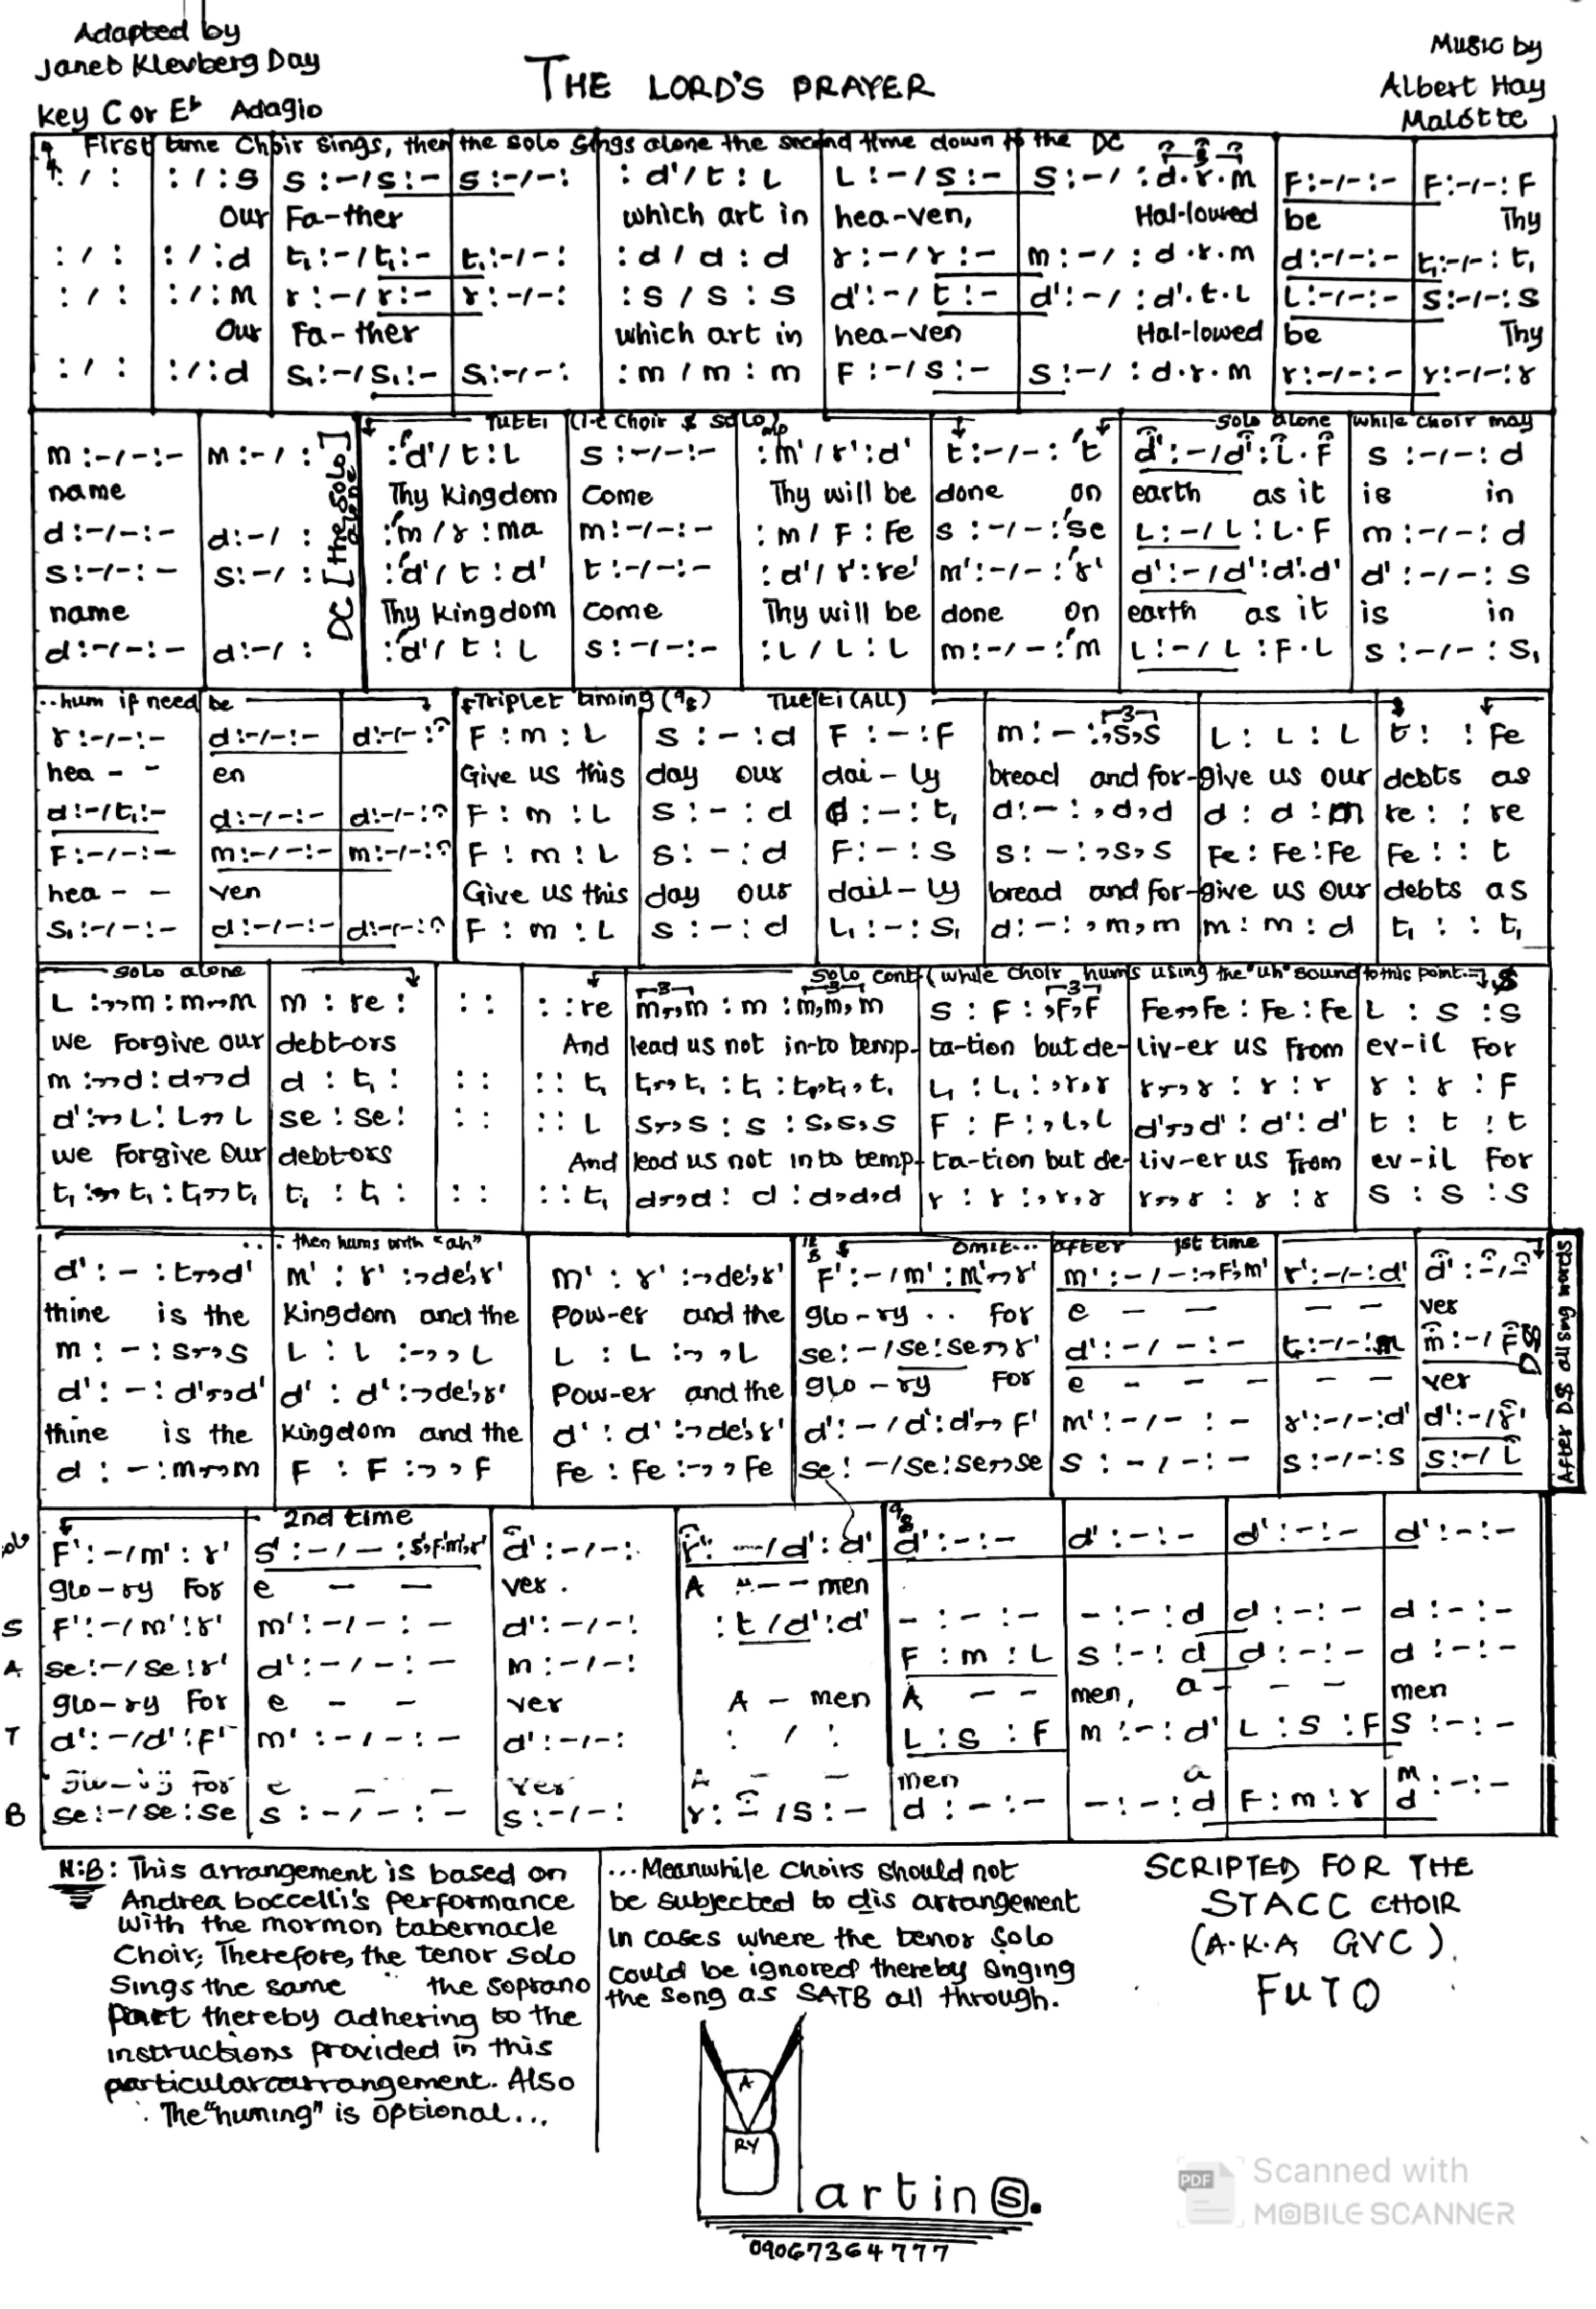 Adapted by
Janet Klevberg Day
Key C or E♭ Adagio
THE LORD'S PRAYER
Music by
Albert Hay
Malotte
First time Choir sings, then the solo sings alone the second time down to the DC
: / : | : / : s | s :-/s :- | s :-/-: | : d' / t : L | L :-/s :- | s :-/ : d.r.m | F :-/-:- | F :-/-: F
Our Fa-ther which art in hea-ven, Hal-loured be Thy
: / : | : / : d | t₁ :-/t₁ :- | t₁ :-/-: | : d / d : d | r :-/r :- | m :-/ : d.r.m | d :-/-:- | t₁ :-/-: t₁
: / : | : / : m | r :-/r :- | r :-/-: | : s / s : s | d' :-/t :- | d' :-/ : d'.t.L | L :-/-:- | s :-/-: s
Our Fa-ther which art in hea-ven Hal-lowed be Thy
: / : | : / : d | s₁ :-/s₁ :- | s₁ :-/-: | : m / m : m | F :-/s :- | s :-/ : d.r.m | r :-/-:- | r :-/-: r
Tutti (i.e Choir & solo) solo alone while choir may
DC [the solo alone]
m :-/-:- | m :-/ : | : 'd' / t : L | s :-/-:- | : m' / r' : d' | t :-/-: 't | d' :-/d' : L.F | s :-/-: d
name Thy Kingdom Come Thy will be done on earth as it is in
d :-/-:- | d :-/ : | : 'm / r : ma | m :-/-:- | : m / F : Fe | s :-/-: 'se | L :-/L : L.F | m :-/-: d
s :-/-:- | s :-/ : | : 'd' / t : d' | t :-/-:- | : d' / r' : re' | m' :-/-: 'r' | d' :-/d' : d'.d' | d' :-/-: s
name Thy Kingdom Come Thy will be done on earth as it is in
d :-/-:- | d :-/ : | : 'd' / t : L | s :-/-:- | : L / L : L | m :-/-: 'm | L :-/L : F.L | s :-/-: s₁
..hum if need be Triplet timing (9/8) Tutti (ALL)
r :-/-:- | d :-/-:- | d :-/-: | F : m : L | s : - : d | F : - : F | m : - : ,s,s | L : L : L | t : : Fe
hea - - en Give us this day our dai-ly bread and for-give us our debts as
d :-/t₁ :- | d :-/-:- | d :-/-: | F : m : L | s : - : d | d : - : t₁ | d : - : ,d,d | d : d : m | re : : re
F :-/-:- | m :-/-:- | m :-/-: | F : m : L | s : - : d | F : - : s | s : - : ,s,s | Fe : Fe : Fe | Fe : : t
hea - - ven Give us this day our dail-ly bread and for-give us our debts as
s₁ :-/-:- | d :-/-:- | d :-/-: | F : m : L | s : - : d | L₁ : - : s₁ | d : - : ,m,m | m : m : d | t₁ : : t₁
solo alone solo cont (while choir hums using the "uh" sound to this point
L :,,m : m,,m | m : re : | : : | : : re | m,,m : m : m,m,m | s : F : ,F,F | Fe,,Fe : Fe : Fe | L : s : s
we forgive our debt-ors And lead us not in-to temp-ta-tion but de-liv-er us from ev-il For
m :,,d : d,,d | d : t₁ : | : : | : : t₁ | t₁,,t₁ : t₁ : t₁,t₁,t₁ | L₁ : L₁ : ,r,r | r,,r : r : r | r : r : F
d' :,,L : L,,L | se : se : | : : | : : L | s,,s : s : s,s,s | F : F : ,L,L | d',,d' : d' : d' | t : t : t
we forgive our debtors And lead us not into temp-ta-tion but de-liv-er us from ev-il For
t₁ :,,t₁ : t₁,,t₁ | t₁ : t₁ : | : : | : : t₁ | d,,d : d : d,d,d | r : r : ,r,r | r,,r : r : r | s : s : s
... then hums with "ah" omit... after 1st time
After DS all sung words
d' : - : t,,d' | m' : r' : ,,de',r' | m' : r' : ,,de',r' | F' :-/m' : m',,r' | m' :-/-: ,,F',m' | r' :-/-: d' | d' :-/-
thine is the Kingdom and the Pow-er and the glo-ry .. For e - - - - ver
m : - : s,,s | L : L :-,,L | L : L :-,,L | se :-/se : se,,r' | d' :-/-:- | t :-/-: m | m :-/F DS
d' : - : d',,d' | d' : d' : ,,de',r' Pow-er and the glo-ry For e - - - - - ver
thine is the Kingdom and the d' : d' : ,,de',r' | d' :-/d' : d',,F' | m' :-/-:- | r' :-/-: d' | d' :-/r'
d : - : m,,m | F : F :-,,F | Fe : Fe :-,,Fe | se :-/se : se,,se | s :-/-:- | s :-/-: s | s :-/L
2nd time
solo F' :-/m' : r' | s' :-/-: s',F',m',r' | d' :-/-: | r' : -/d' : d' | d' :-:- | d' :-:- | d' :-:- | d' :-:-
glo-ry For e - - ver. A - - men
S F' :-/m' : r' | m' :-/-:- | d' :-/-: | : t / d' : d' | - :-:- | - :-: d | d :-:- | d :-:-
A se :-/se : r' | d' :-/-:- | m :-/-: | F : m : L | s :-: d | d :-:- | d :-:-
glo-ry For e - - ver A - men A - - men, a - - - men
T d' :-/d' : F' | m' :-/-:- | d' :-/-: | : / : | L : s : F | m :-: d' | L : s : F | s :-:-
For e - - ver A - - men a m
B se :-/se : se | s :-/-:- | s :-/-: | r : -/s :- | d :-:- | - :-: d | F : m : r | d :-:-
N:B: This arrangement is based on
Andrea boccelli's performance
with the mormon tabernacle
Choir; Therefore, the tenor solo
Sings the same " the soprano
Part thereby adhering to the
instructions provided in this
particular arrangement. Also
The "huming" is optional...
...Meanwhile choirs should not
be subjected to dis arrangement
in cases where the tenor solo
could be ignored thereby singing
the song as SATB all through.
SCRIPTED FOR THE
STACC CHOIR
(A.K.A GVC).
FUTO
A
RY
Martins.
09067364777
PDF
Scanned with
MOBILE SCANNER